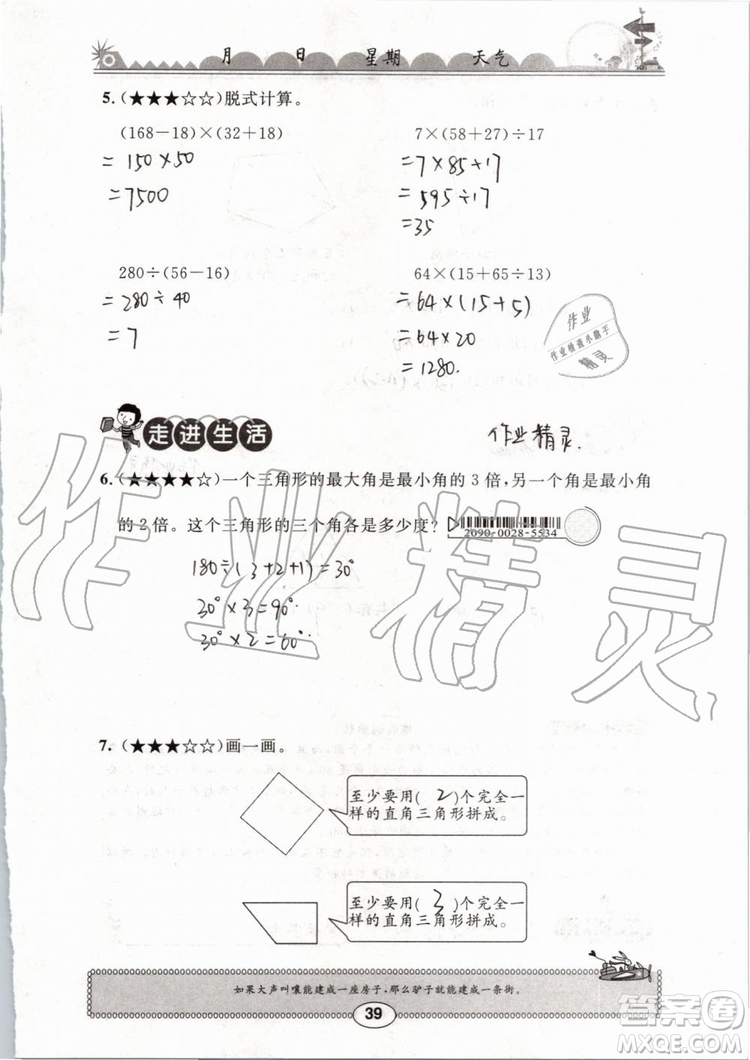 月 日 星期 天气
5.(★★★☆☆)脱式计算。
(168-18)×(32+18) 7×(58+27)÷17
=150×50 =7×85÷17
=7500 =595÷17
=35
280÷(56-16) 64×(15+65÷13)
=280÷40 =64×(15+5)
=7 =64×20
=1280.
作业
作业检查小帮手
精灵
走进生活
作业精灵.
6.(★★★★☆)一个三角形的最大角是最小角的 3 倍,另一个角是最小角
的 2 倍。这个三角形的三个角各是多少度?
2090-0028-5534
180÷(3+2+1)=30°
30°×3=90°
30°×2=60°
作业精灵
7.(★★★☆☆)画一画。
至少要用( 2 )个完全一
样的直角三角形拼成。
至少要用( 3 )个完全一
样的直角三角形拼成。
如果大声叫嚷能建成一座房子,那么驴子就能建成一条街。
39
答案卷